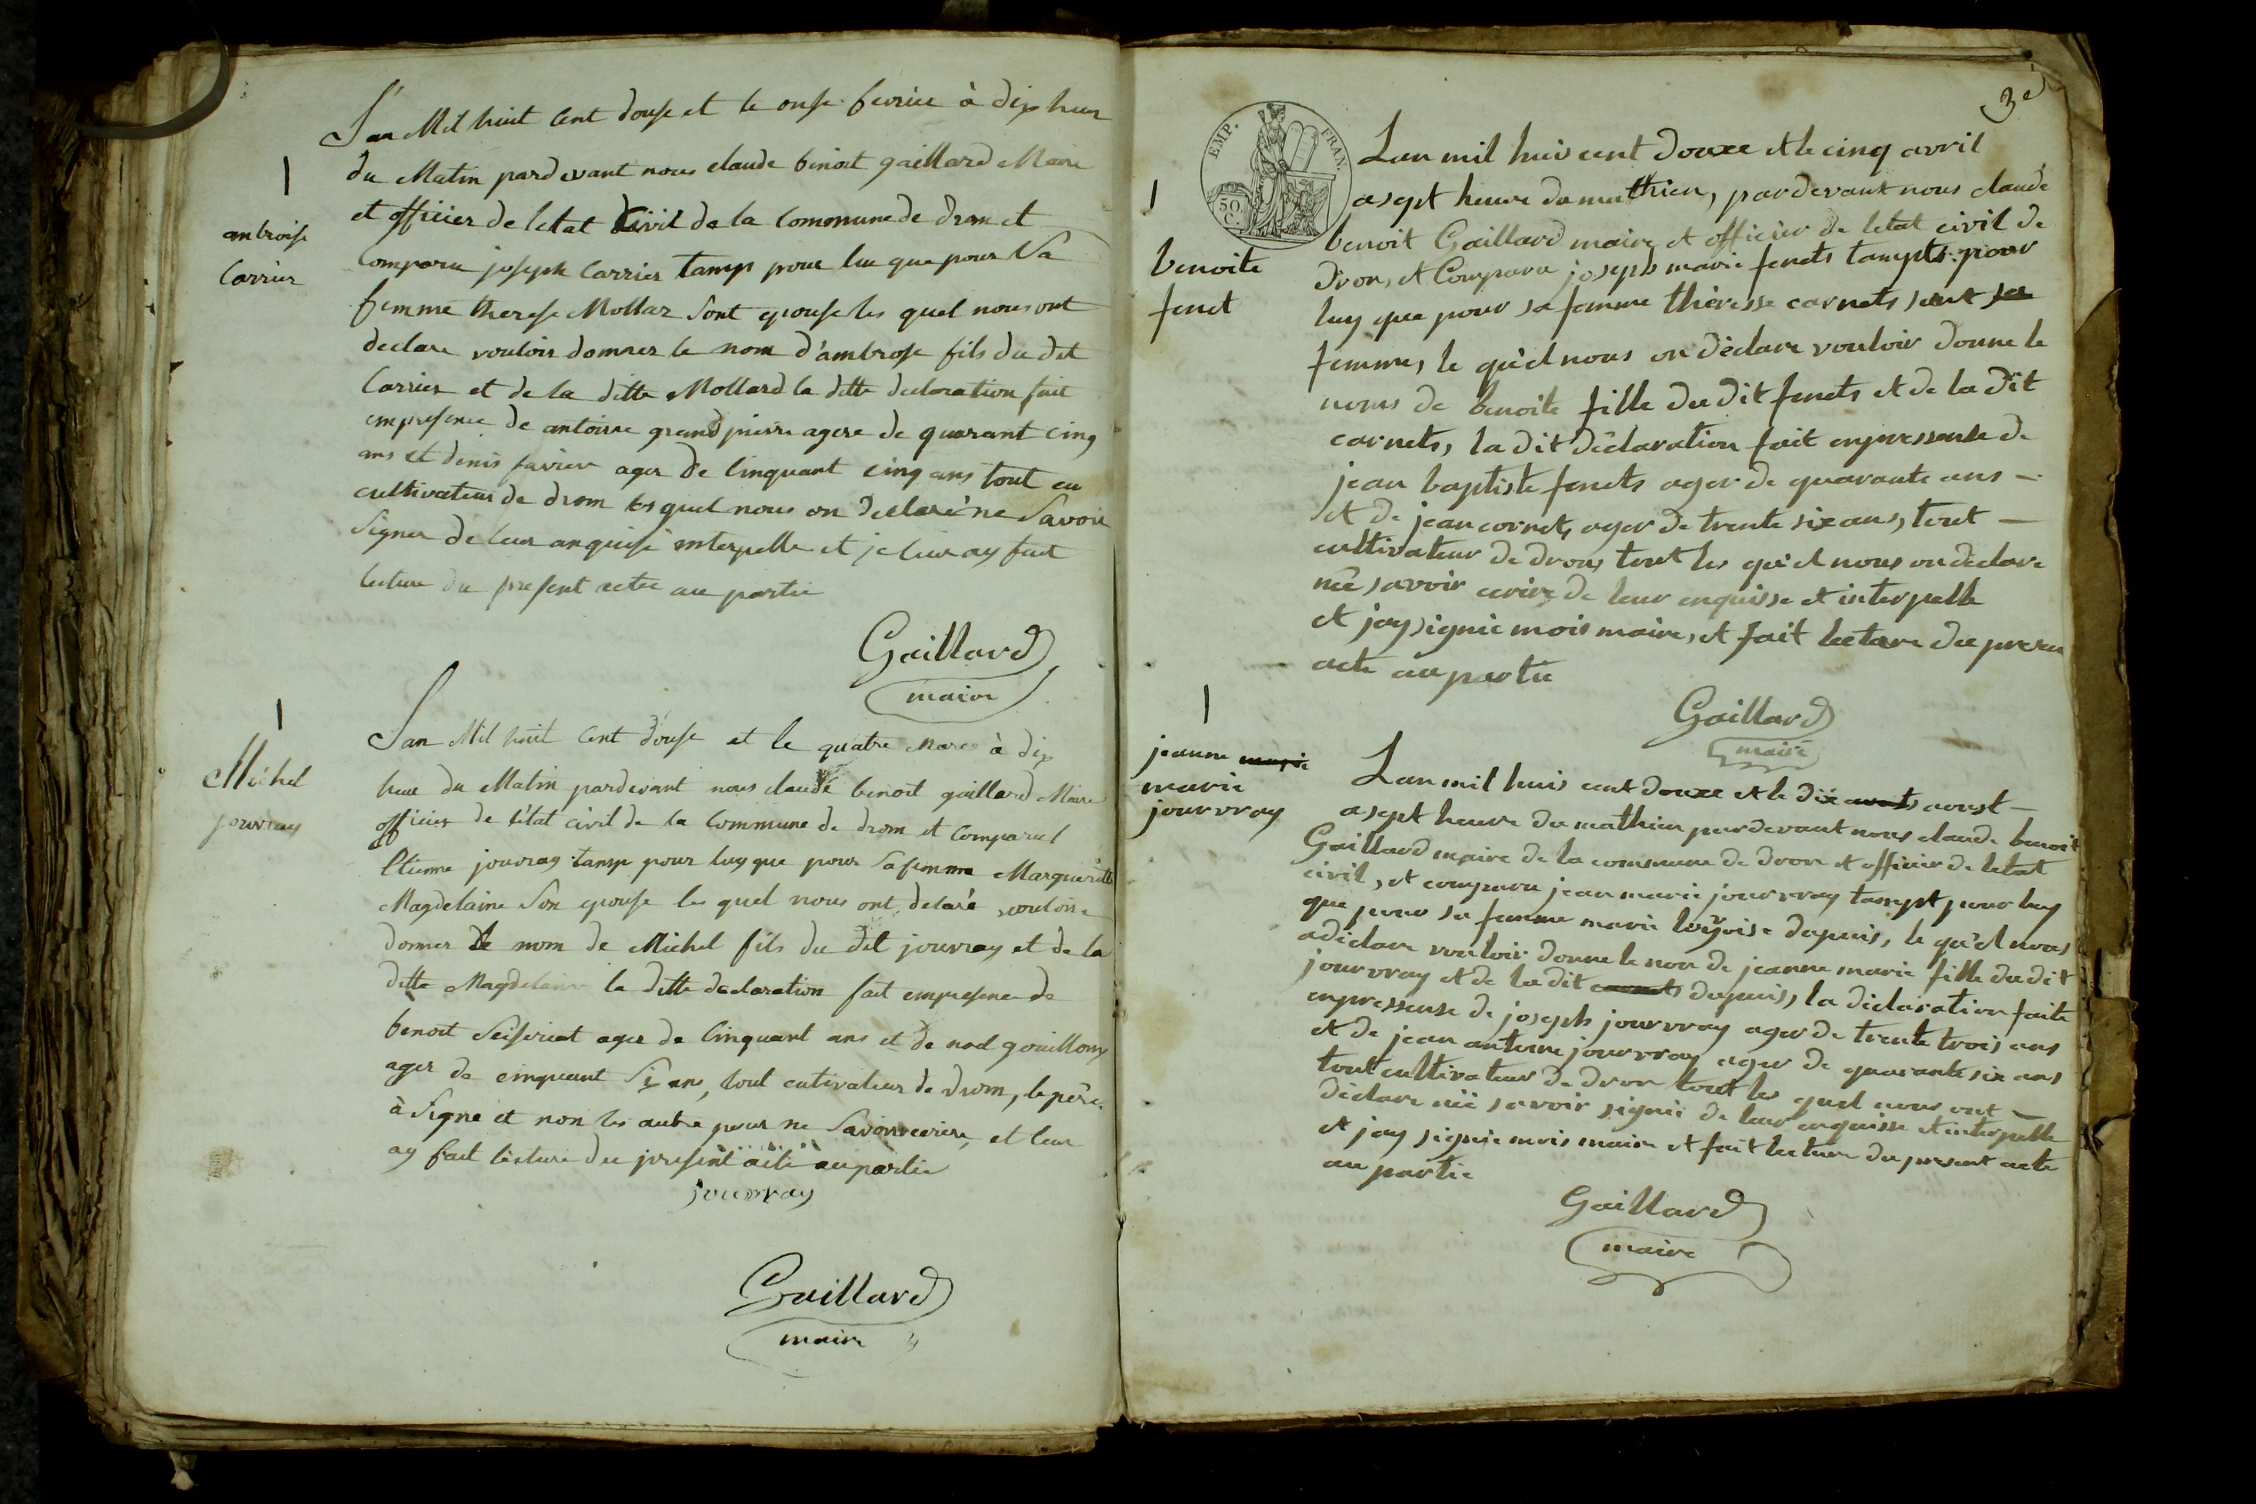 ambroise
Carrier
L'an Mil huit Cent douse et le onse fevrier à dix heur
du Matin pardevant nous claude benoit gaillard Maire
et officier de letat Civil de la Commune de drom et
Comparu joseph Carrier tamp pour lui que pour Sa
femme therese Mollar Sont epouse les quel nous ont
declare vouloir donner le nom d'ambrose fils du dit
Carrier et de la ditte Mollard la ditte declaration fait
empresence de antoine grand pierre agere de quarant cinq
ans et denis favier ager de Cinquant cinq ans tout eu
cultivateur de drom les quel nous on declaré ne Savoir
Signer de leur anquise interpelle et je leur ay fait
lecture du present acte au partie
Gaillard
maire
Michel
jouvray
L'an Mil huit Cent douse et le quatre Mars à dix
heur du Matin pardevant nous claude benoit gaillard Maire
officier de l'état civil de la Commune de drom et Comparut
Etienne jouvray tamp pour luy que pour Sa femme Marguerite
Magdelaine Son epouse les quel nous ont delaré vouloire
donner le nom de Michel fils du dit jouvray et de la
ditte Magdelaine la ditte declaration fait empresence de
benoit ager de Cinquant ans et de noel gouilloux
ager de cinquant Six ans, tout cutivateur de drom, le père
à Signe et non les autre pour ne Savoir ecrire, et leur
ay fait lecture du present acte au partie
jouvray
Gaillard
maire
3e
EMP. FRAN.
50 C
benoite
fenet
Lan mil huis cent douxe et le cinq avril
a sept heure du mathien, pardevant nous claude
benoit Gaillard maire et officier de letat civil de
dron, et Comparu joseph marie fenets tampts pour
luy que pour sa femme thèresse carnets sont sa
femme, le qu'el nous on dèclare vouloir donne le
noms de benoite fille du dit fenets et de la dit
carnets, la dit dèclaration fait enpressense de
jean baptiste fenets ager de quarante ans –
et de jean cornets ager de trente six ans, tout –
cultivateur de drons tout les qu'el nous on dèclare
nèe savoir ecrire de leur enquisse et interpelle
et jay signie mois maire, et fait lecture du presen
acte au partie
Gaillard
maire
jeanne marie
marie
jourvray
Lan mil huis cent douxe et le dix aouts aoust –
a sept heure du mathien pardevant nous claude benoit
Gaillard maire de la commune de dron et officier de letat
civil, et comparu jean marie jourvray tampt pour luy
que pour sa femme marie loÿoise dupuis, le qu'el nous
a dèclare vouloir donne le non de jeanne marie fille du dit
jourvray et de la dit carnets dupuis, la dèclaration faite
enpressense de joseph jourvray ager de trente trois ans
et de jean antoine jourvray ager de quarante six ans
tout cultivateur de dron tout les quel nous ont –
dèclare nèè savoir signie de leur enquisse et interpelle
et jay signie mois maire et fait lecture du present acte
au partie
Gaillard
maire